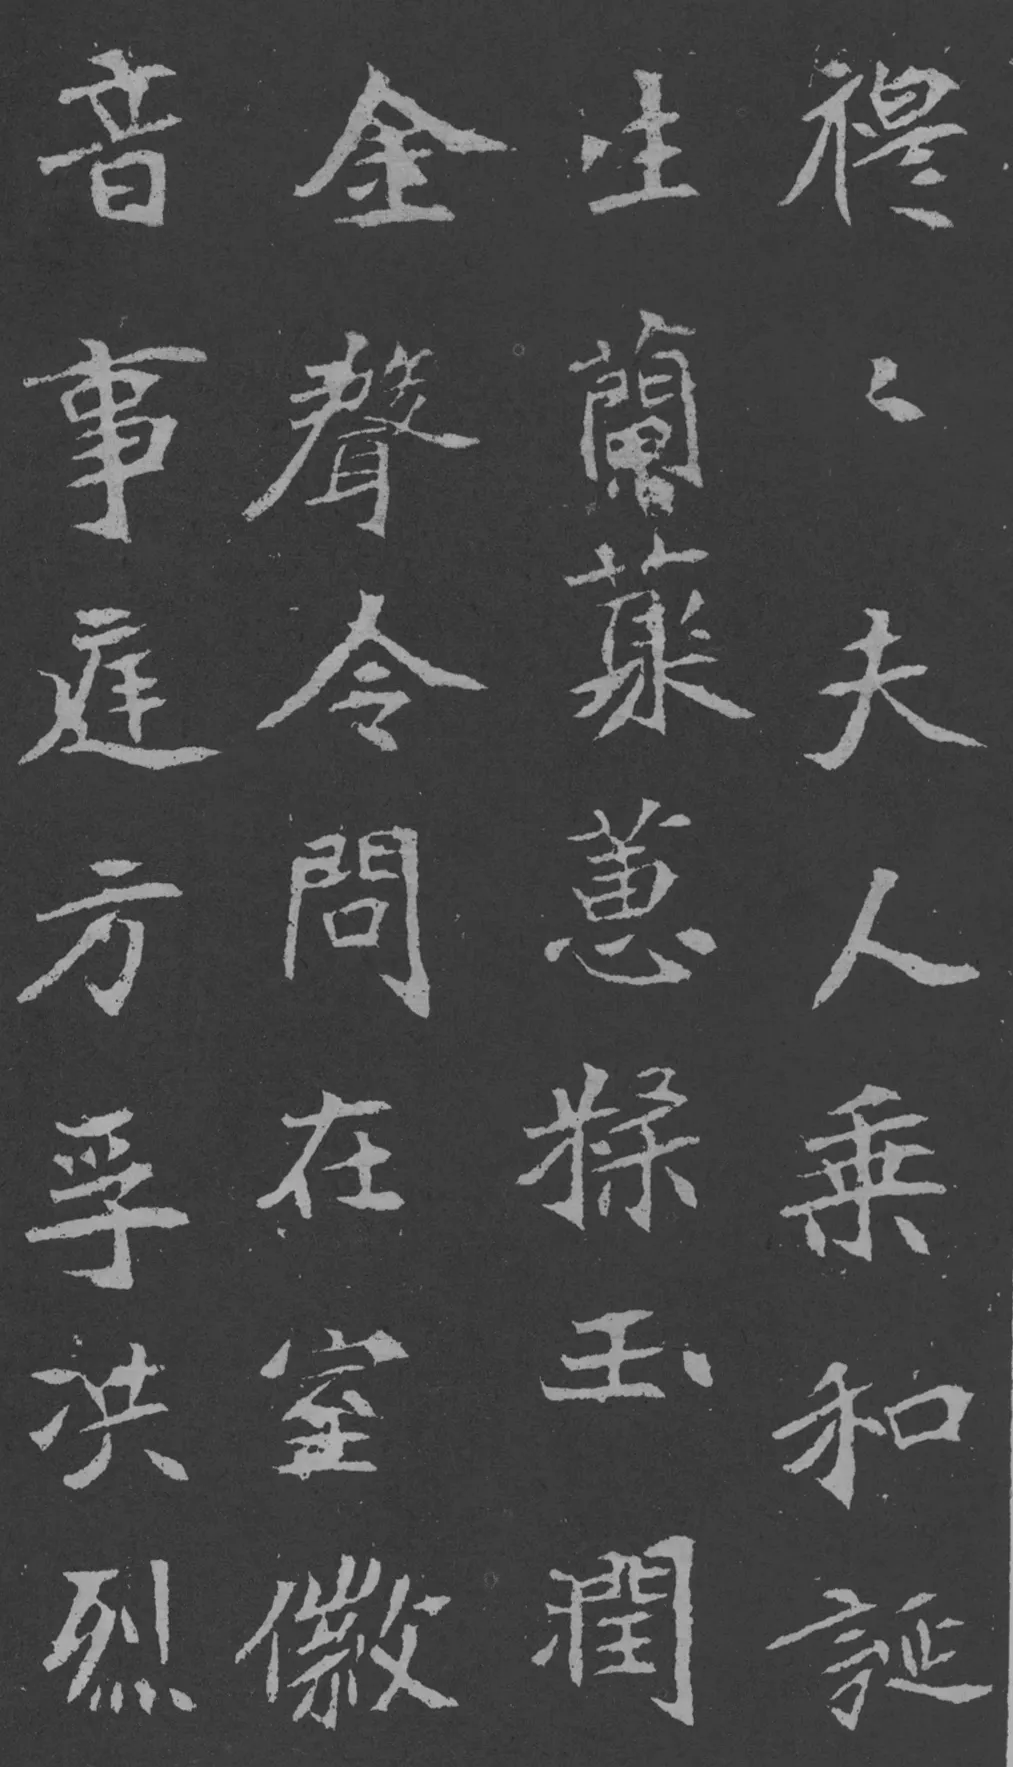 穆〻夫人乗和誕
生蘭薬蕙糅玉潤
金聲令問在室徽
音事庭方孚洪烈